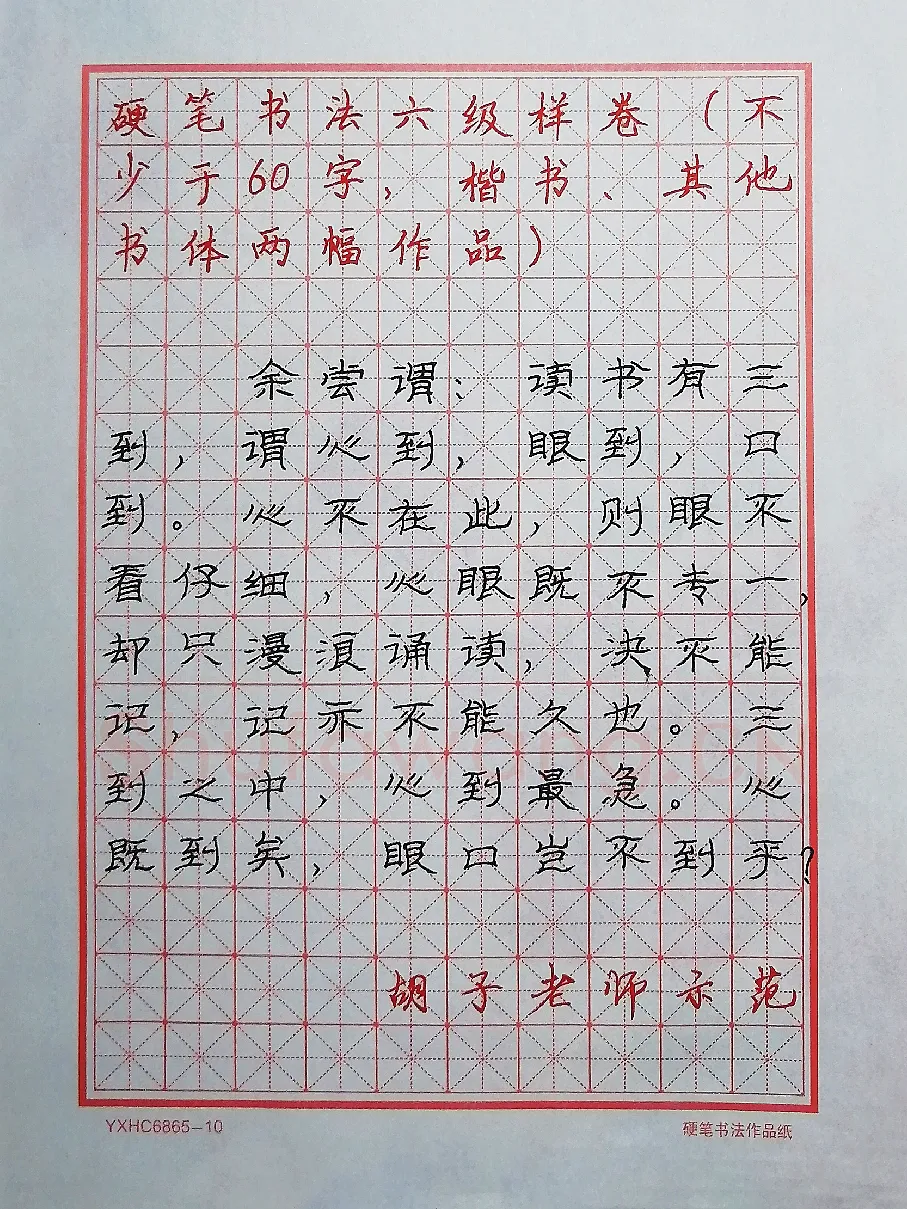 硬笔书法六级样卷（不
少于60字，楷书、其他
书体两幅作品）
余尝谓：读书有三
到，谓心到，眼到，口
到。心不在此，则眼不
看仔细，心眼既不专一，
却只漫浪诵读，决不能
记，记亦不能久也。三
到之中，心到最急。心
既到矣，眼口岂不到乎？
胡子老师示范
YXHC6865-10
硬笔书法作品纸